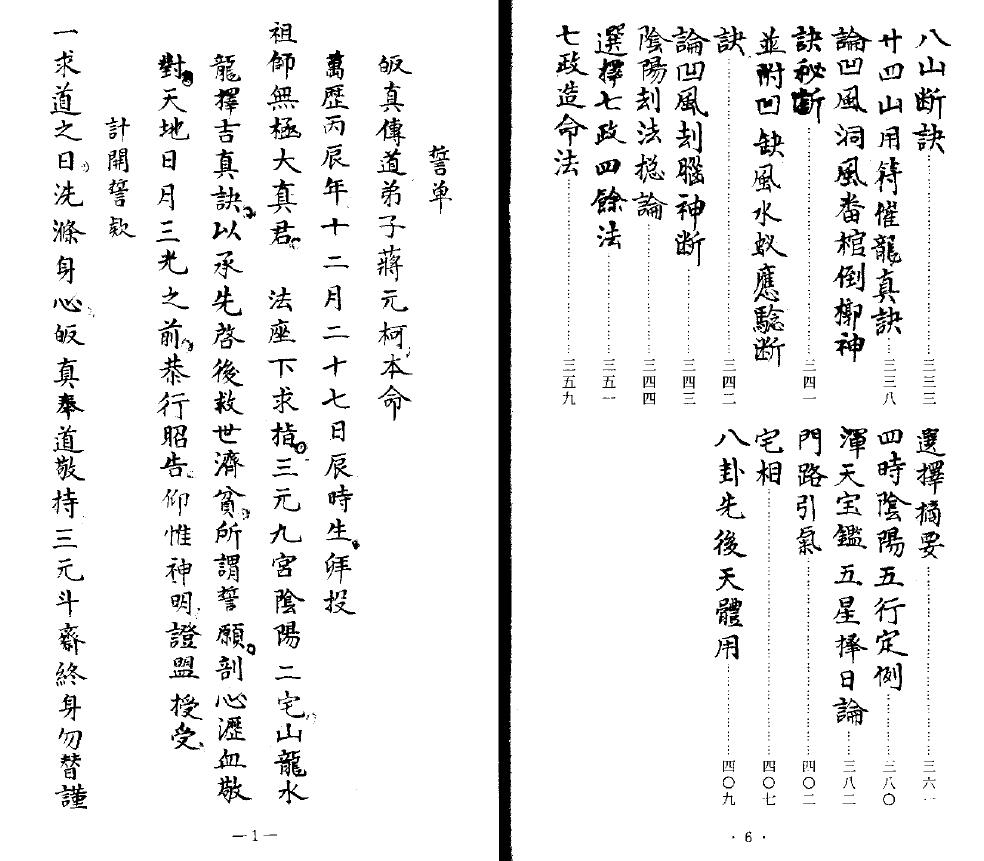 八山断訣……三三三
廿四山用符催龍真訣……三三八
論凹風洞風畨棺倒槨神
訣秘斷……三四一
並附凹缺風水蚁應騐断
訣……三四二
論凹風刦腦神断……三四三
陰陽刦法捴論……三四四
選擇七政四餘法……三五一
七政造命法……三五九
選擇摘要……三六一
四時陰陽五行定例……三八〇
渾天宝鑑五星擇日論……三八二
門路引氣……四〇二
宅相……四〇七
八卦先後天體用……四〇九
·6·
誓单
皈真傳道弟子蔣元柯本命
萬歷丙辰年十二月二十七日辰時生。拜投
祖師無極大真君。 法座下求指。三元九宮陰陽二宅。山龍水
龍擇吉真訣。以承先啓後救世濟貧。所謂誓願。剖心瀝血敬
對。天地日月三光之前。恭行昭告。仰惟神明。證盟授受。
計開誓欵
一求道之日。洗滌身心。皈真奉道敬持三元斗齋終身勿替謹
—1—